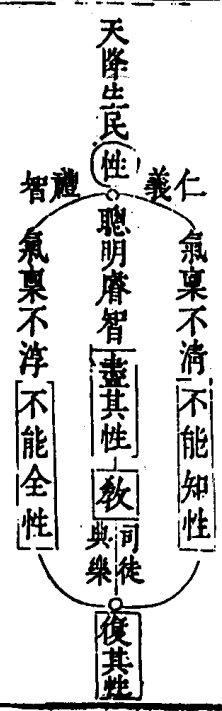 天降生民
性
仁義
禮智
氣稟不清
不能知性
聰明睿智
盡其性
教
司徒
典樂
氣稟不淳
不能全性
復其性